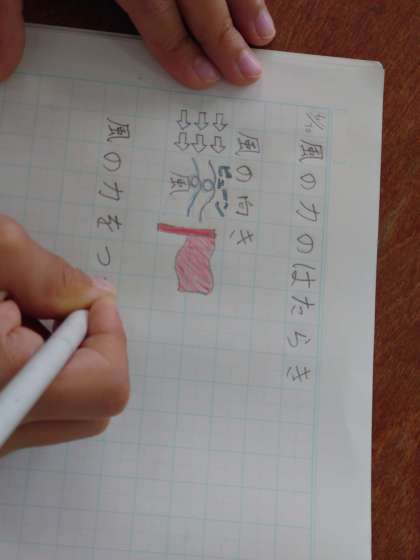 風の力のはたらき
風の向き
ビューン
風
風の力をつ